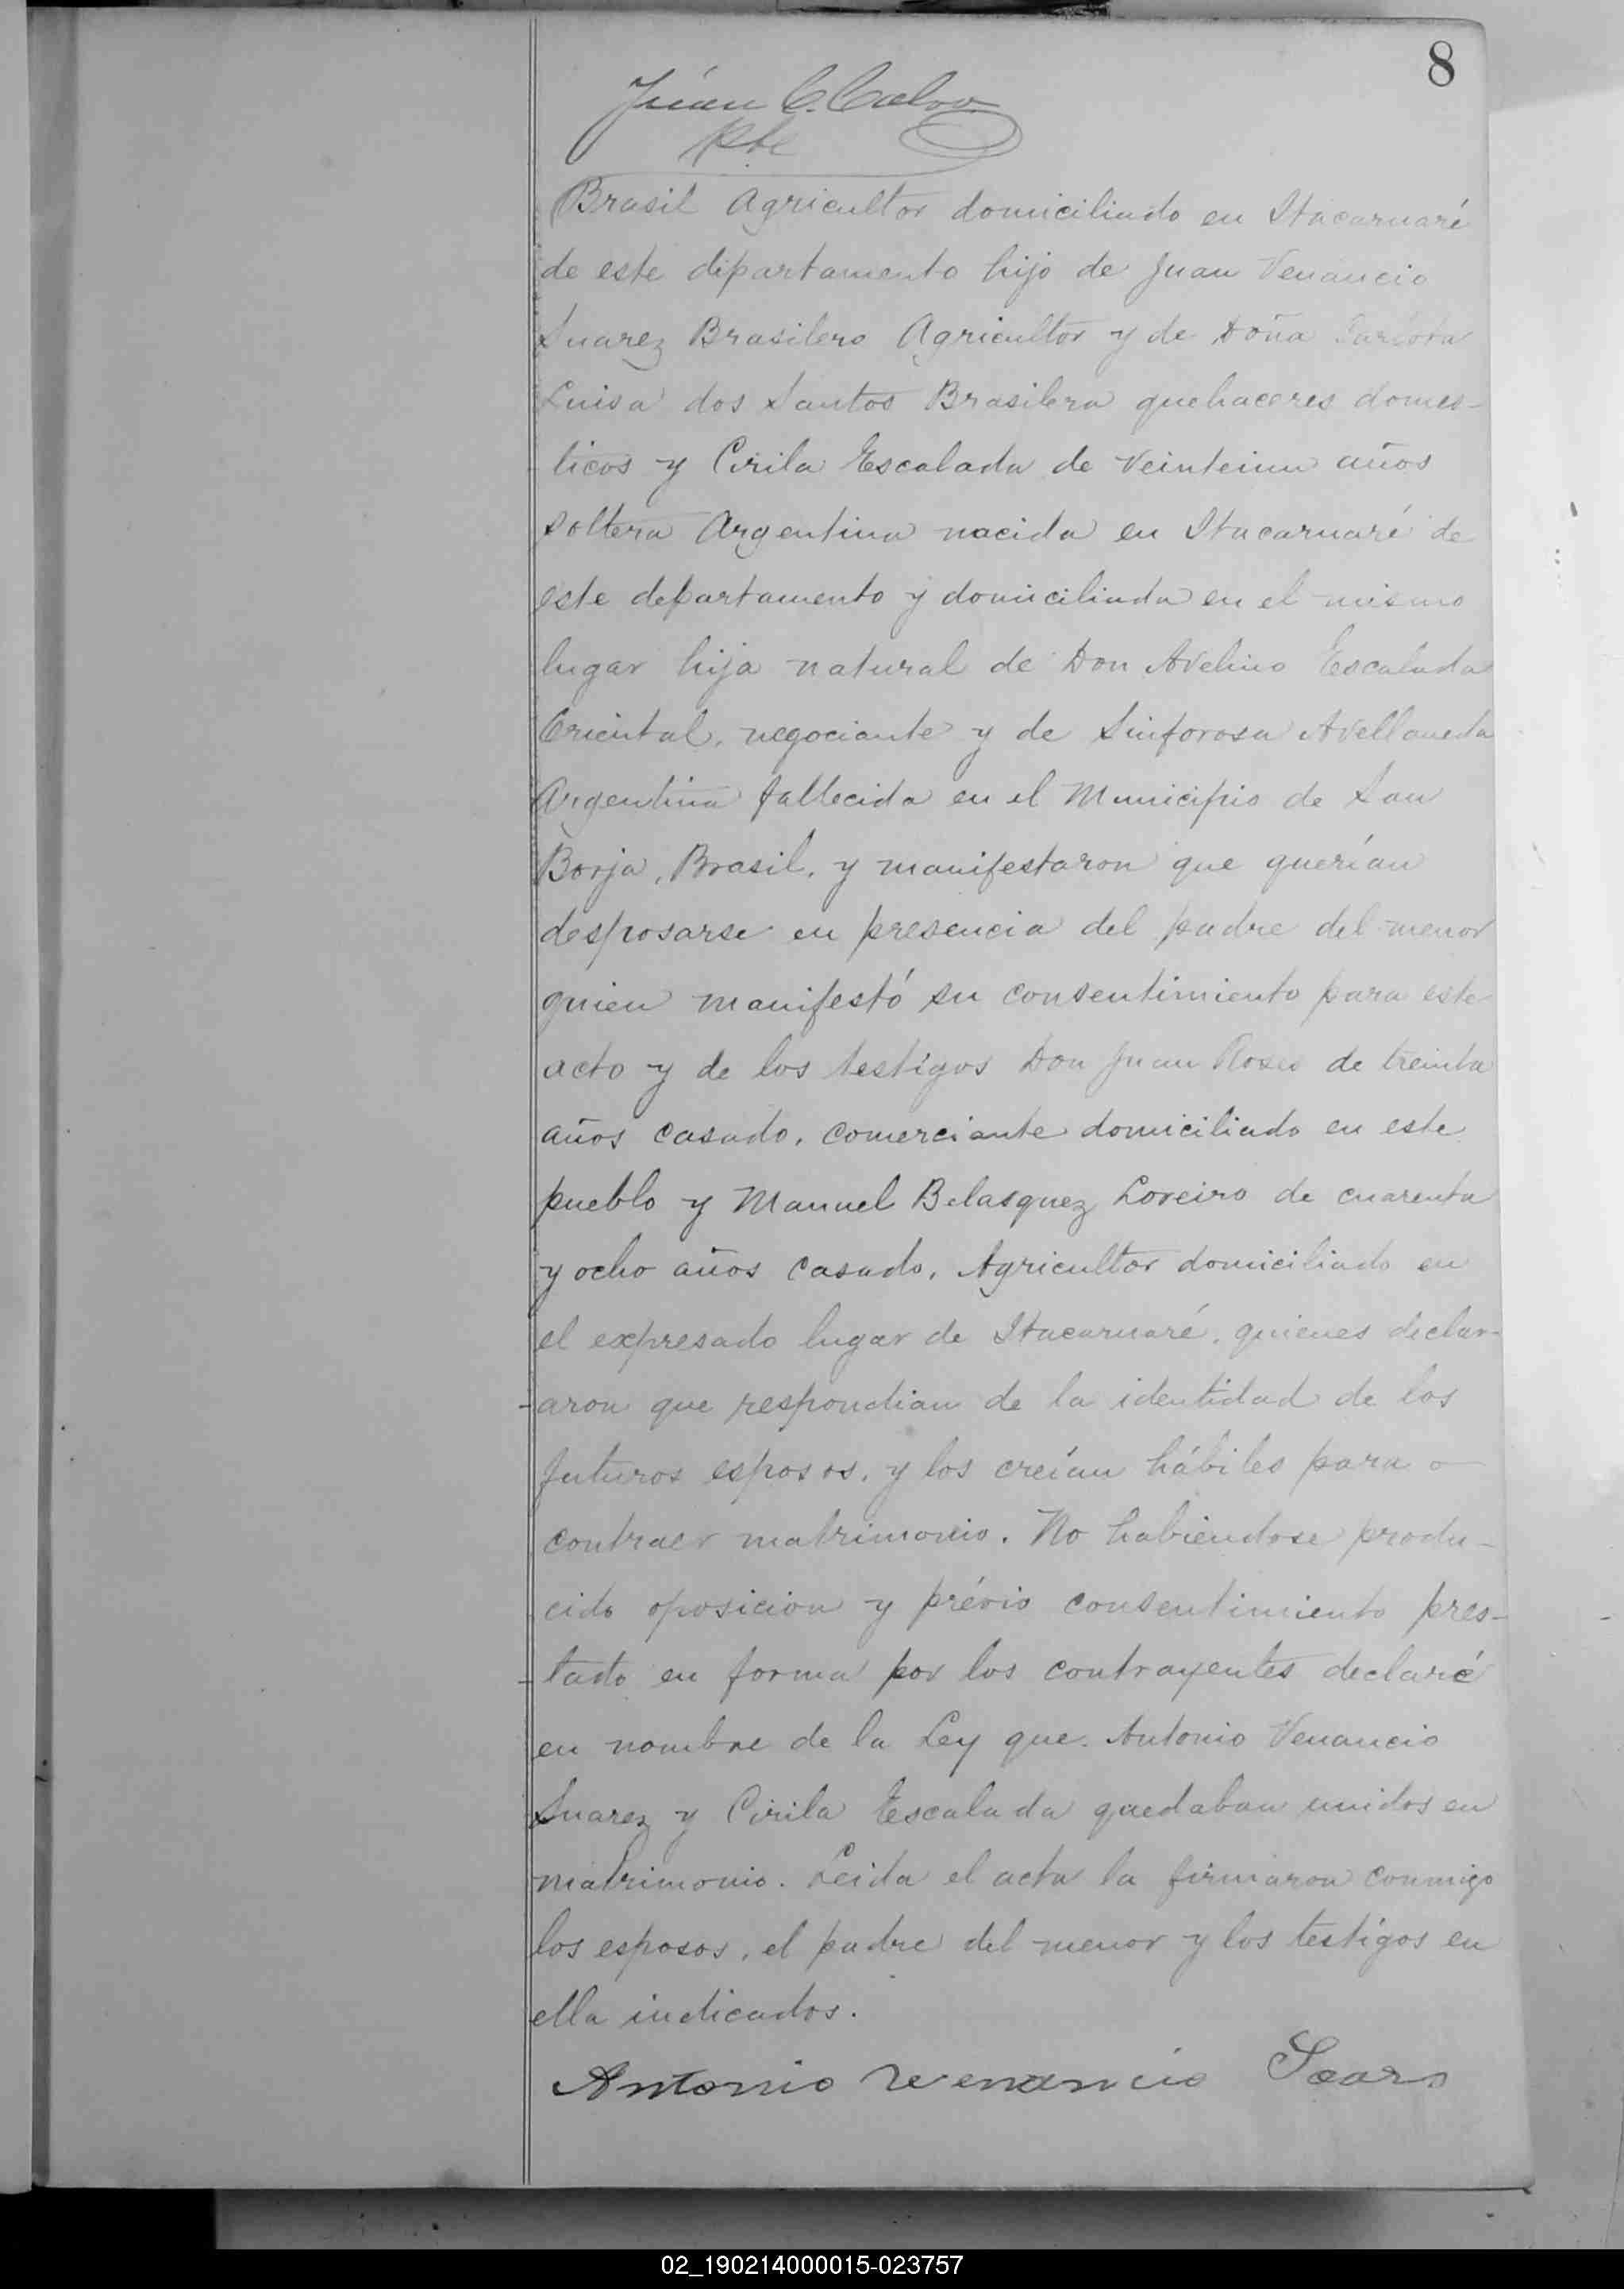 8
Juan C. Calvo
Pte
Brasil Agricultor domiciliado en Itacaruaré
de este dipartamento hijo de Juan Venancio
Suarez Brasilero Agricultor y de Doña
Luisa dos Santos Brasilera quehaceres domes-
ticos y Cirila Escalada de veintiun años
soltera Argentina nacida en Itacaruaré de
este departamento y domiciliada en el mismo
lugar hija natural de Don Avelino Escalada
Oriental, negociante y de Sinforosa Avellaneda
Argentina fallecida en el Municipio de San
Borja, Brasil, y manifestaron que querían
desposarse en presencia del padre del menor
quien manifestó su consentimiento para este
acto y de los testigos Don Juan de treinta
años casado, comerciante domiciliado en este
pueblo y Manuel Belasquez Loreiro de cuarenta
y ocho años casado, Agricultor domiciliado en
el expresado lugar de Itacaruaré, quienes declar-
-aron que respondian de la identidad de los
futuros esposos, y los creían hábiles para
contraer matrimonio. No habiendose produ-
cido oposicion y prévio consentimiento pres-
-tado en forma por los contrayentes declaré
en nombre de la Ley que. Antonio Venancio
Suarez y Cirila Escalada quedaban unidos en
matrimonio. Leida el acta la firmaron conmigo
los esposos, el padre del menor y los testigos en
ella indicados.
Antonio Venancio Soars
02_190214000015-023757